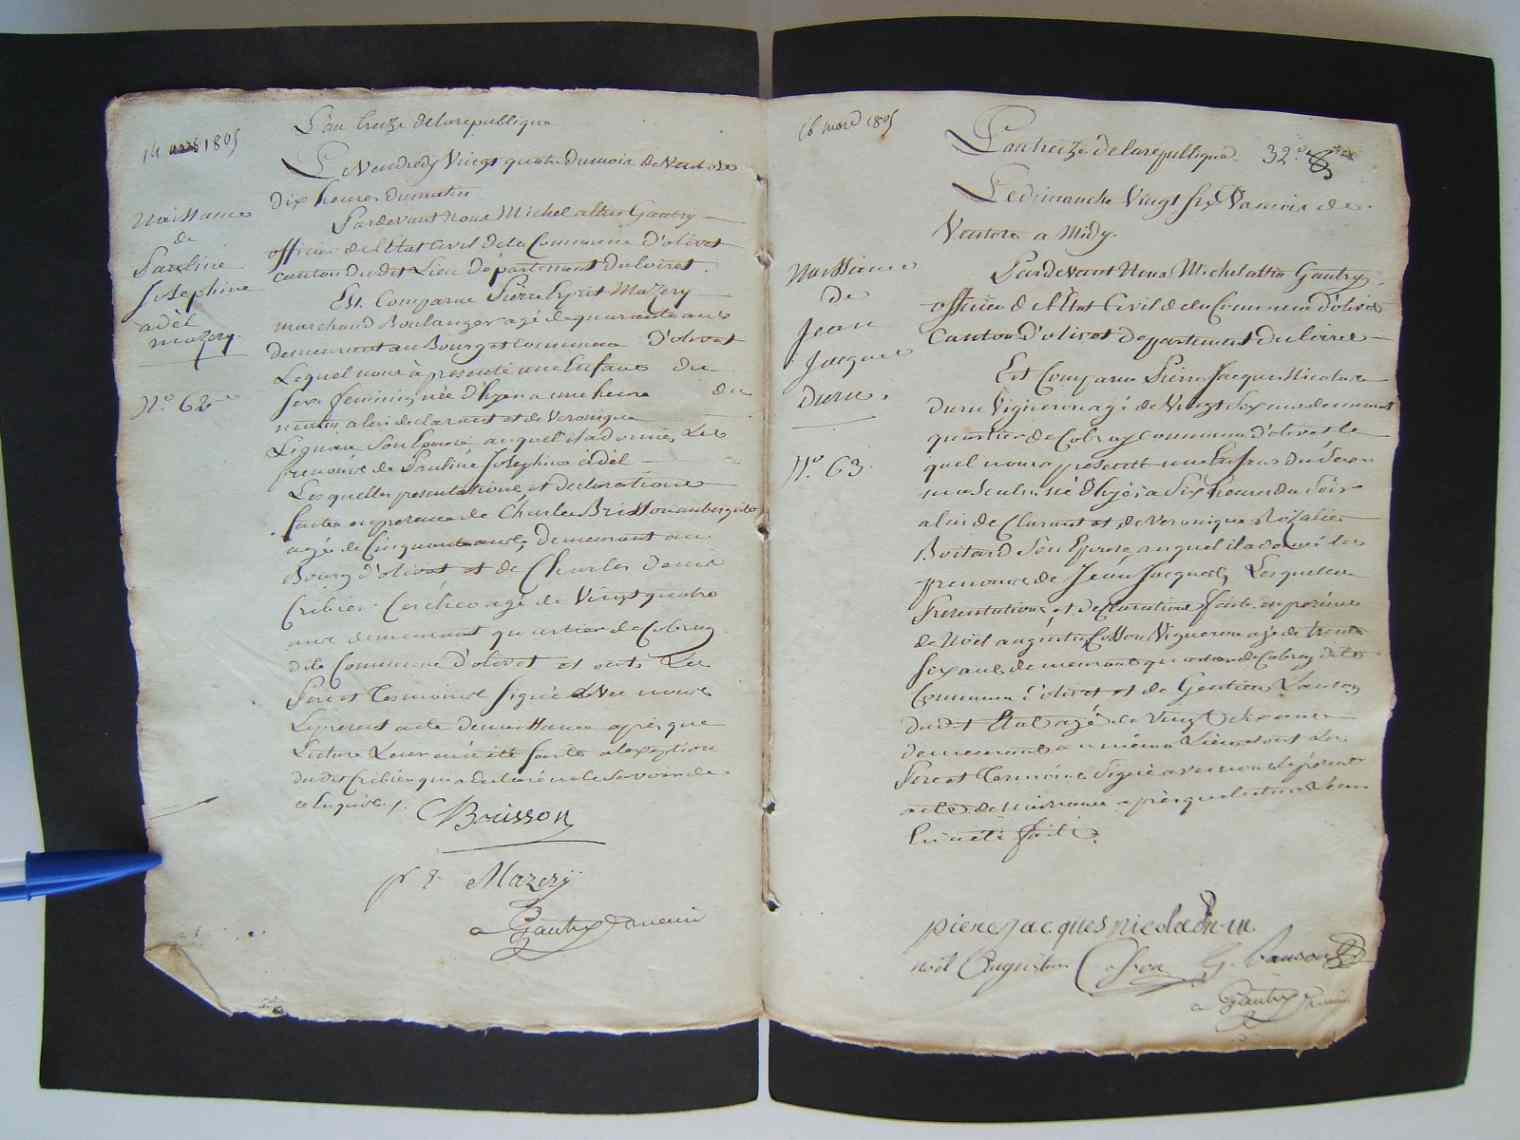 14 mars 1805
L'an treize de la republique
Le Vendredy Vingt quatre du mois de Ventose
dix heures du matin
Naissance
de
Pauline
Josephine
adèl
mazery
N.o 62
Pardevant nous Michel altin Gautry
officier de l'Etat Civil de la Commune d'olivet
canton dudit Lieu departement du loiret.
Est Comparu Pierre hyret Mazery
marchand Boulanger agé de quarante ans
demeurant au Bourg et Commune D'olivet
Lequel nous à presenté une Enfant du
sexe feminin, née d'hyer a une heure du
matin, a lui declarant et de Veronique
Ligneau Son Epouse auquel il a donné, Les
prenoms de Pauline Josephine adèl
Les quelles presentations et declarations
faites en presence de Charles Brisson aubergiste
agé de Cinquante ans, demeurant au
Bourg d'olivet et de Charles Denis
Cribier agé de Vingt quatre
ans demeurant quartier de Cobray
dite Commune d'olivet et ont Les
Pere et Temoins Signé avec nous
Le present acte de naissance après que
Lecture Leur en à été faite a l'exception
dudit Cribier qui a declaré ne le Savoir de
ce Enquis.
Brisson
p h Mazery
a Gautry
16 mars 1805
L'an treize de la republique. 32.e
Le dimanche Vingt Six Du mois de
Ventose a Midy.
Naissance
de
Jean
Jacques
Duru.
N.o 63.
Pardevant Nous Michel altin Gautry,
officier de l'Etat Civil de la Commune d'olivet
Canton d'olivet departement du loiret
Est Comparu Pierre Jacques Nicolas
duru Vigneron agé de Vingt Six ans demeurant
quartier de Cobray commune d'olivet le
quel nous a presenté un Enfant du Sexe
masculin, né d'hyer a Six heures du Soir
a lui de Clarant et de Veronique Rosalie
Boitard Son Epouse auquel il a donné les
prenoms de Jean Jacques, Lesquelles
Presentations et declarations faites en presence
de Noël augustin Cosson Vigneron agé de trente
six ans demeurant quartier de Cobray dite
Commune d'olivet et de Gentien Lanson
dudit Etat agé de Vingt
demeurant au même Lieu et ont Les
Pere et Temoins Signé avec nous le present
acte de Naissance après que lecture Leur
En à été faite.
piere jacques nicolas duru
noël augustin Cosson G. Lanson
a Gautry